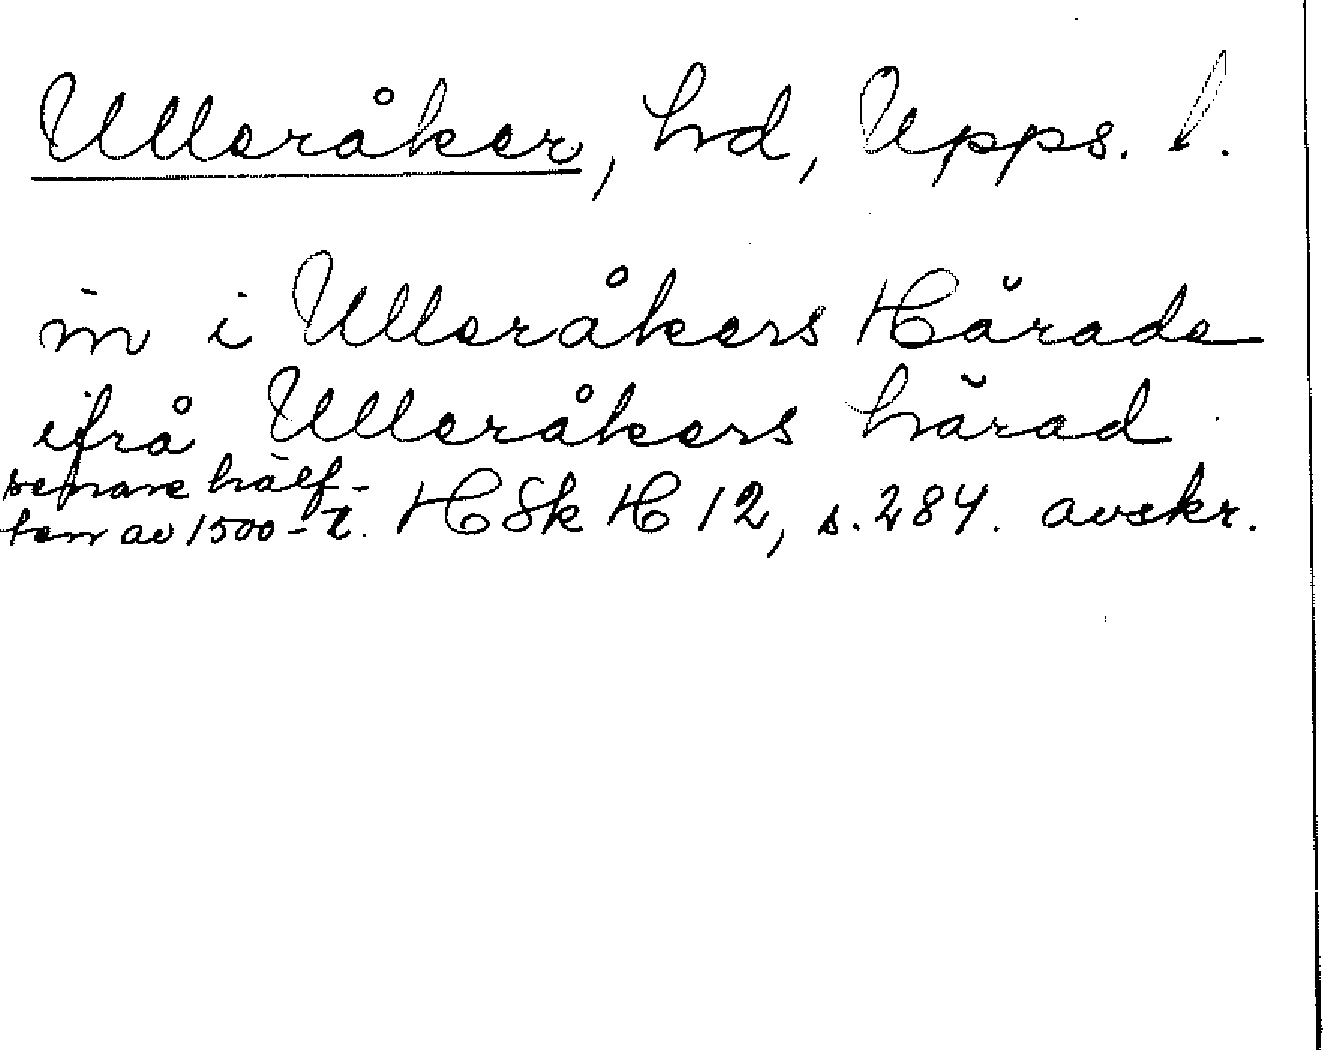 Ulleråker, hd, Upps. l.
in i Ulleråkers Härade
ifrå Ulleråkers härad
senare hälf-
ten av 1500-t. HSk H 12, s. 284. avskr.